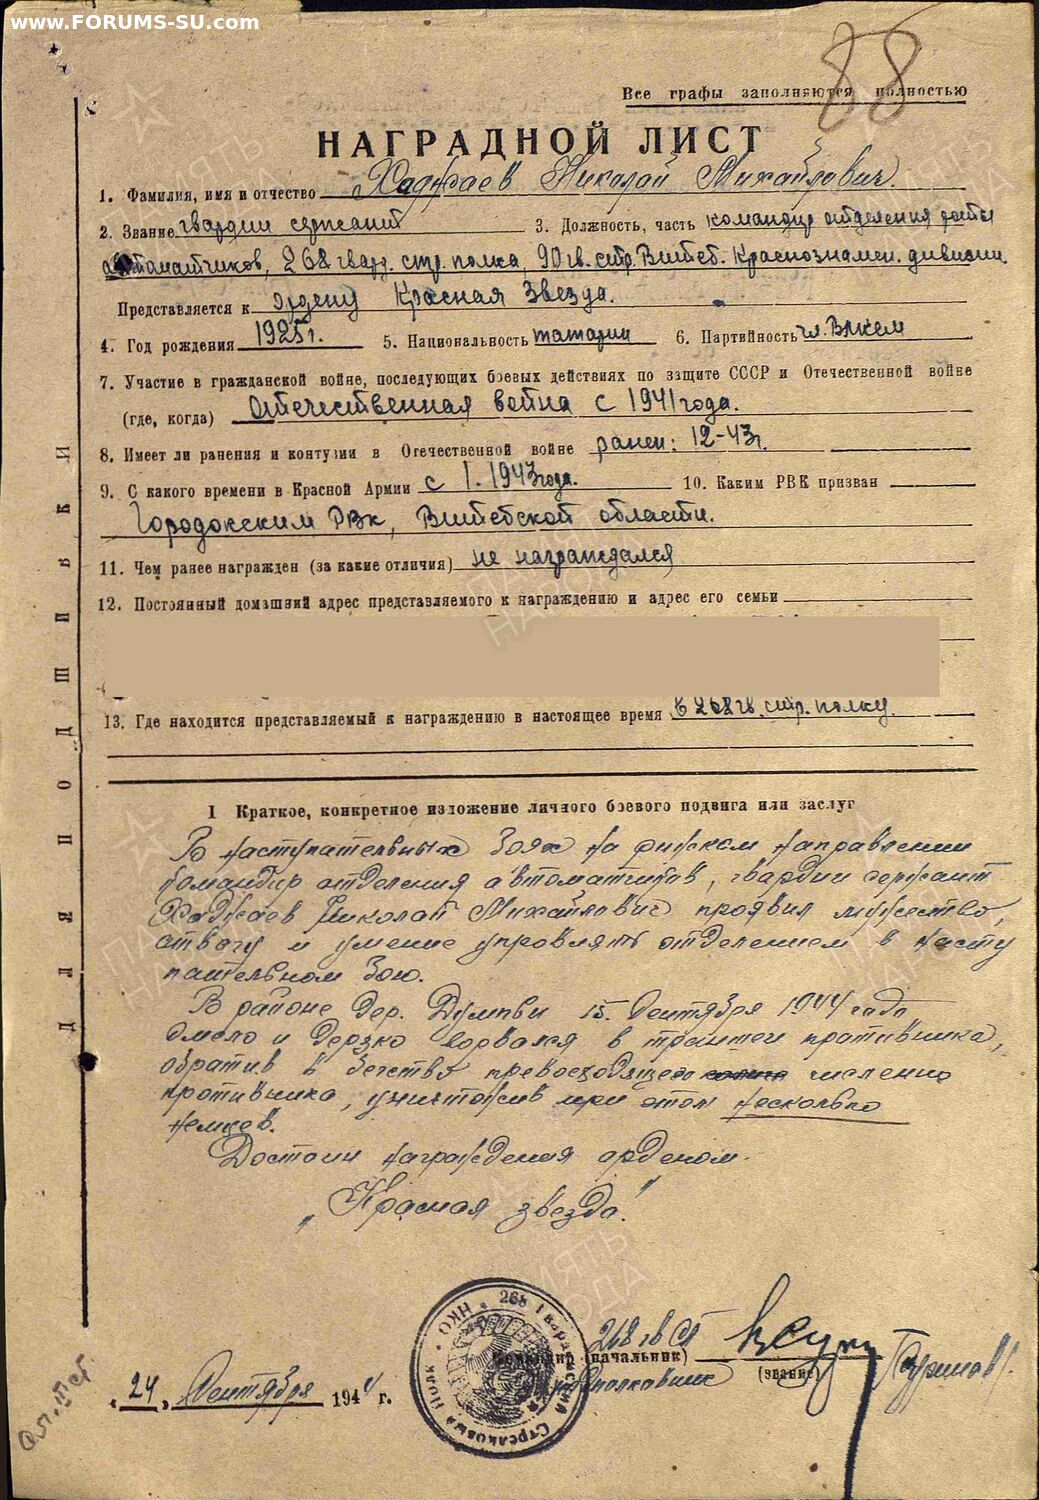 www.FORUMS-SU.com
88
Все графы заполняются полностью
НАГРАДНОЙ ЛИСТ
1. Фамилия, имя и отчество Хаджаев Николай Михайлович.
2. Звание гвардии сержант 3. Должность, часть командир отделения роты
автоматчиков, 268 гвард. стр. полка, 90 гв. стр. Витеб. Краснознамен. дивизии.
Представляется к ордену Красная Звезда.
4. Год рождения 1925 г. 5. Национальность татарин 6. Партийность чл. ВЛКСМ
7. Участие в гражданской войне, последующих боевых действиях по защите СССР и Отечественной войне
(где, когда) Отечественная война с 1941 года.
8. Имеет ли ранения и контузии в Отечественной войне ранен: 12-43 г.
9. С какого времени в Красной Армии с 1. 1943 года. 10. Каким РВК призван
Городокским РВК, Витебской области.
11. Чем ранее награжден (за какие отличия) не награждался
12. Постоянный домашний адрес представляемого к награждению и адрес его семьи
13. Где находится представляемый к награждению в настоящее время в 268 гв. стр. полку.
I Краткое, конкретное изложение личного боевого подвига или заслуг
В наступательных боях на рижском направлении
командир отделения автоматчиков, гвардии сержант
Хаджаев Николай Михайлович проявил мужество,
отвагу и умение управлять отделением в насту
пательном бою.
В районе дер. Думпьи 15 Сентября 1944 года
смело и дерзко ворвался в траншеи противника,
обратив в бегство превосходящего численно
противника, уничтожив при этом несколько
немцев.
Достоин награждения орденом
„Красная звезда".
Командир (начальник) 268 гв СП
Подполковник (звание)
24 Сентября 1944 г.
НКО * 268 Гвардейский Стрелковый Полк
ДЛЯ ПОДШИВКИ
ПАМЯТЬ НАРОДА